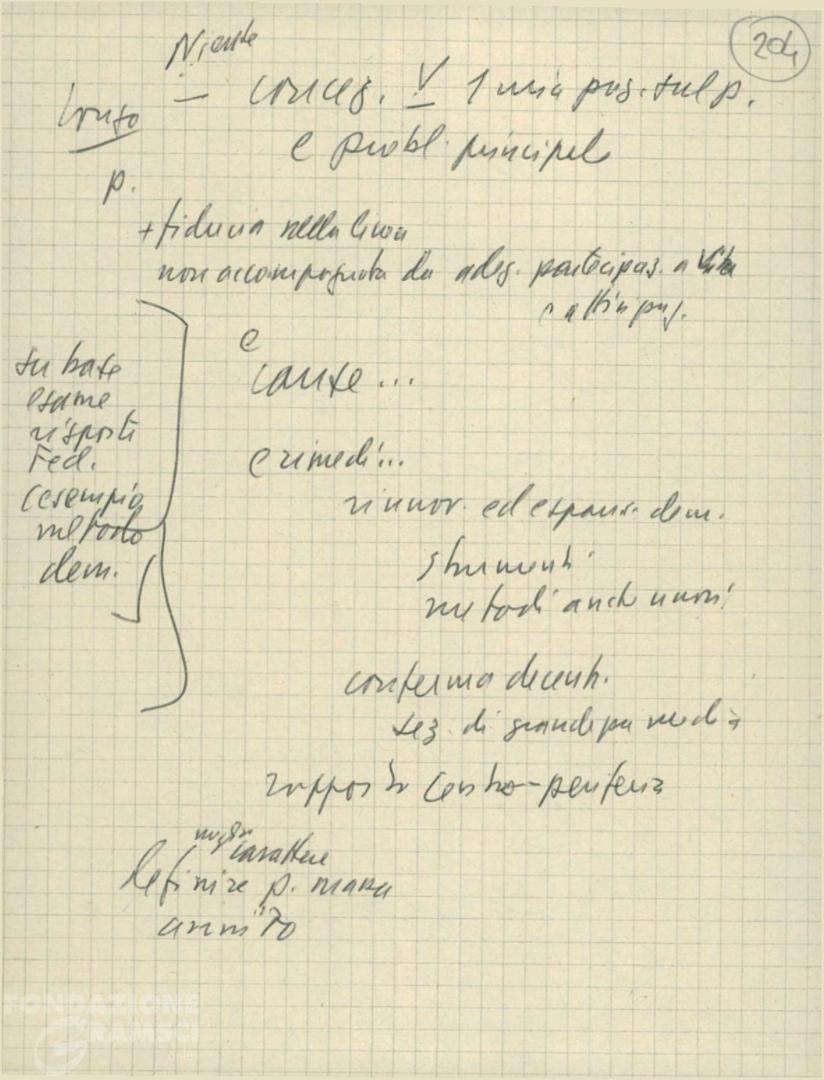 204
Niente
Longo — congr. V 1 mia pag. sul p.
e probl. principale
p.
+ fiducia nella linea
non accompagnata da adeg. partecipaz. a vita
e attiv. pol.
e
cause...
su base
esame
risposte
Fed.
(esempio
metodo
dem.
e rimedi...
rinnov. ed espans. dem.
strumenti
metodi anche nuovi
conferma decentr.
sez. di grande
rapporto centro-periferia
carattere
definire p. massa
anni '70
FONDAZIONE
GRAMSCI